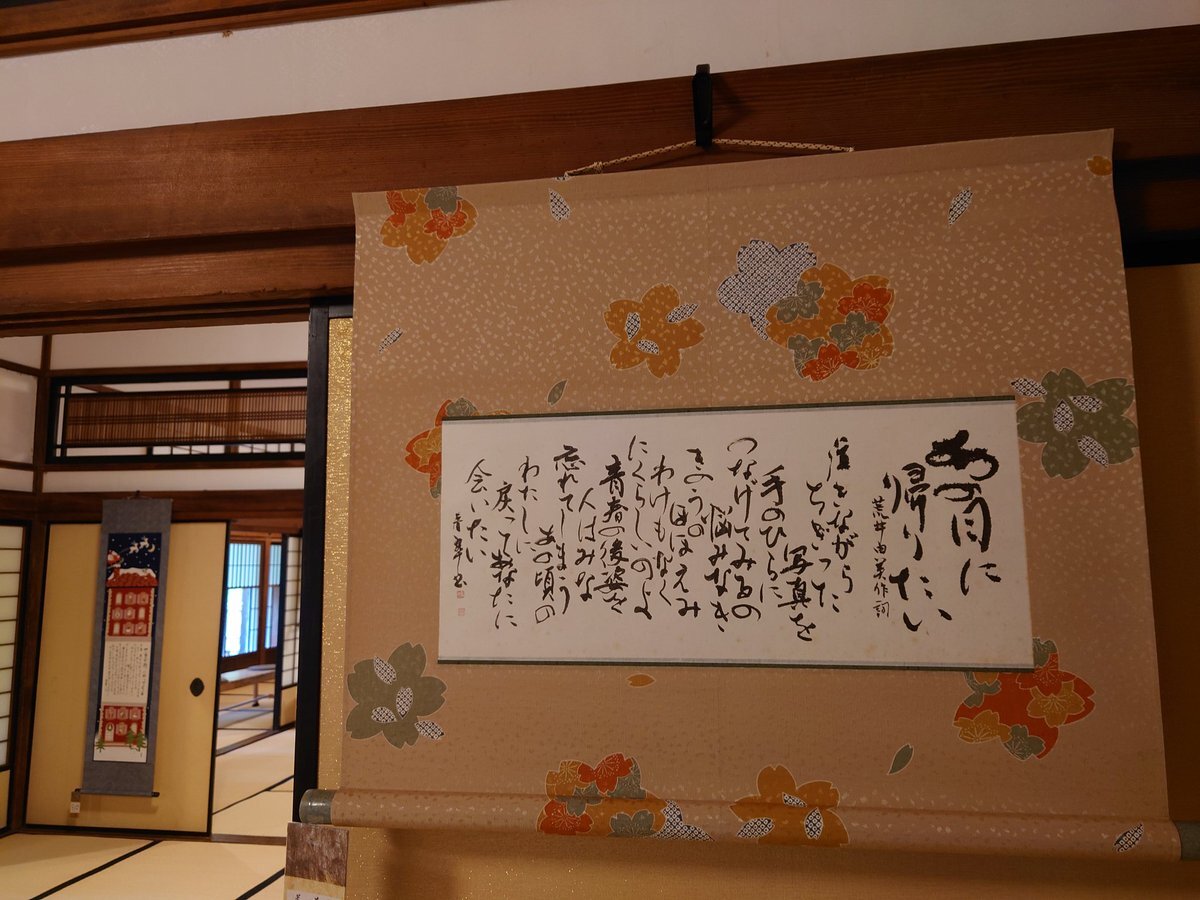 あの日に
帰りたい
荒井由美作詞
泣きながら
ちぎった
写真を
手のひらに
つなげてみるの
悩みなき
きのうの
ほほえみ
わけもなく
にくらしいのよ
青春の後姿を
人はみな
忘れてしまう
あの頃の
わたしに
戻ってあなたに
会いたい